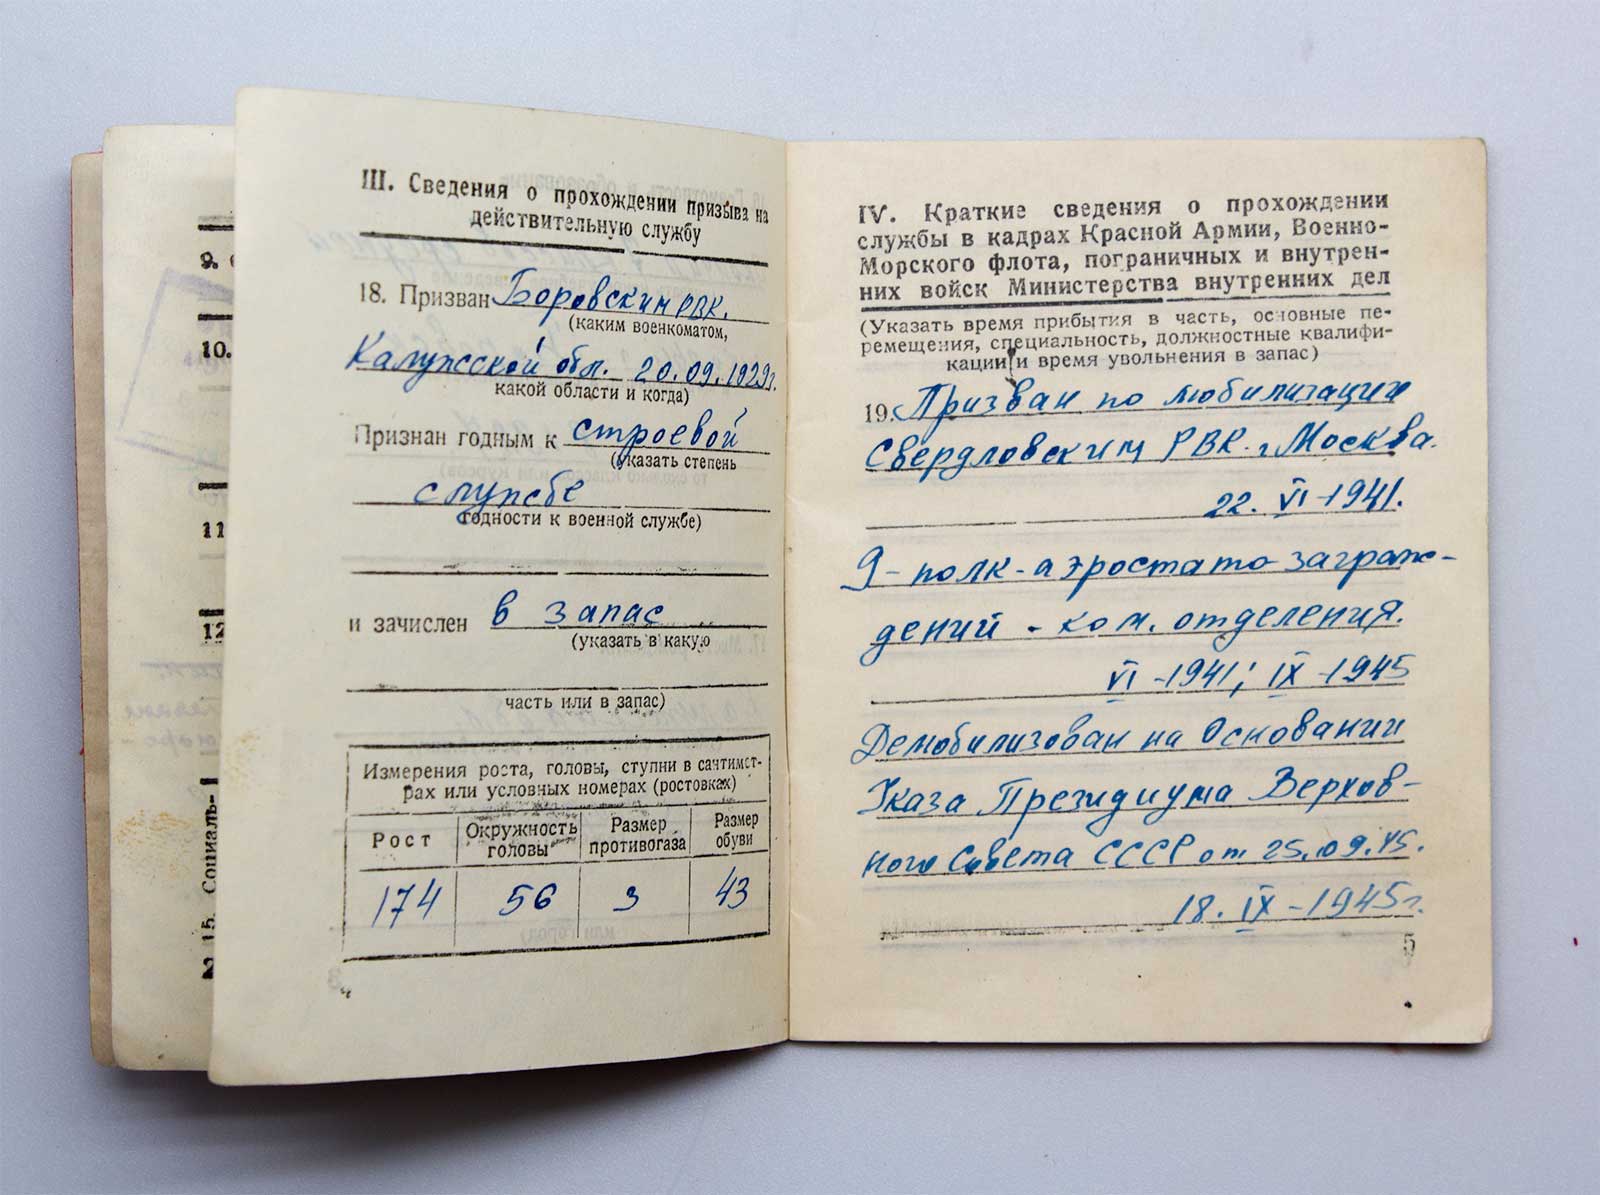 9.
10.
11
12
15. Социаль-
III. Сведения о прохождении призыва на
действительную службу
18. Призван Боровским РВК.
(каким военкоматом,
Калужской обл. 20.09.1929г.
какой области и когда)
Признан годным к строевой
(указать степень
службе
годности к военной службе)
и зачислен в запас
(указать в какую
часть или в запас)
Измерения роста, головы, ступни в сантимет-
рах или условных номерах (ростовках)
Рост Окружность головы Размер противогаза Размер обуви
174 56 3 43
IV. Краткие сведения о прохождении
службы в кадрах Красной Армии, Военно-
Морского флота, пограничных и внутрен-
них войск Министерства внутренних дел
(Указать время прибытия в часть, основные пе-
ремещения, специальность, должностные квалифи-
кации и время увольнения в запас)
19. Призван по мобилизации
Свердловским РВК. г. Москва.
22. VI-1941.
9-полк-аэростато-заграж-
дений - ком. отделения.
VI-1941; IX-1945
Демобилизован на Основании
Указа Президиума Верхов-
ного Совета СССР от 25.09.45.
18. IX-1945г.
5